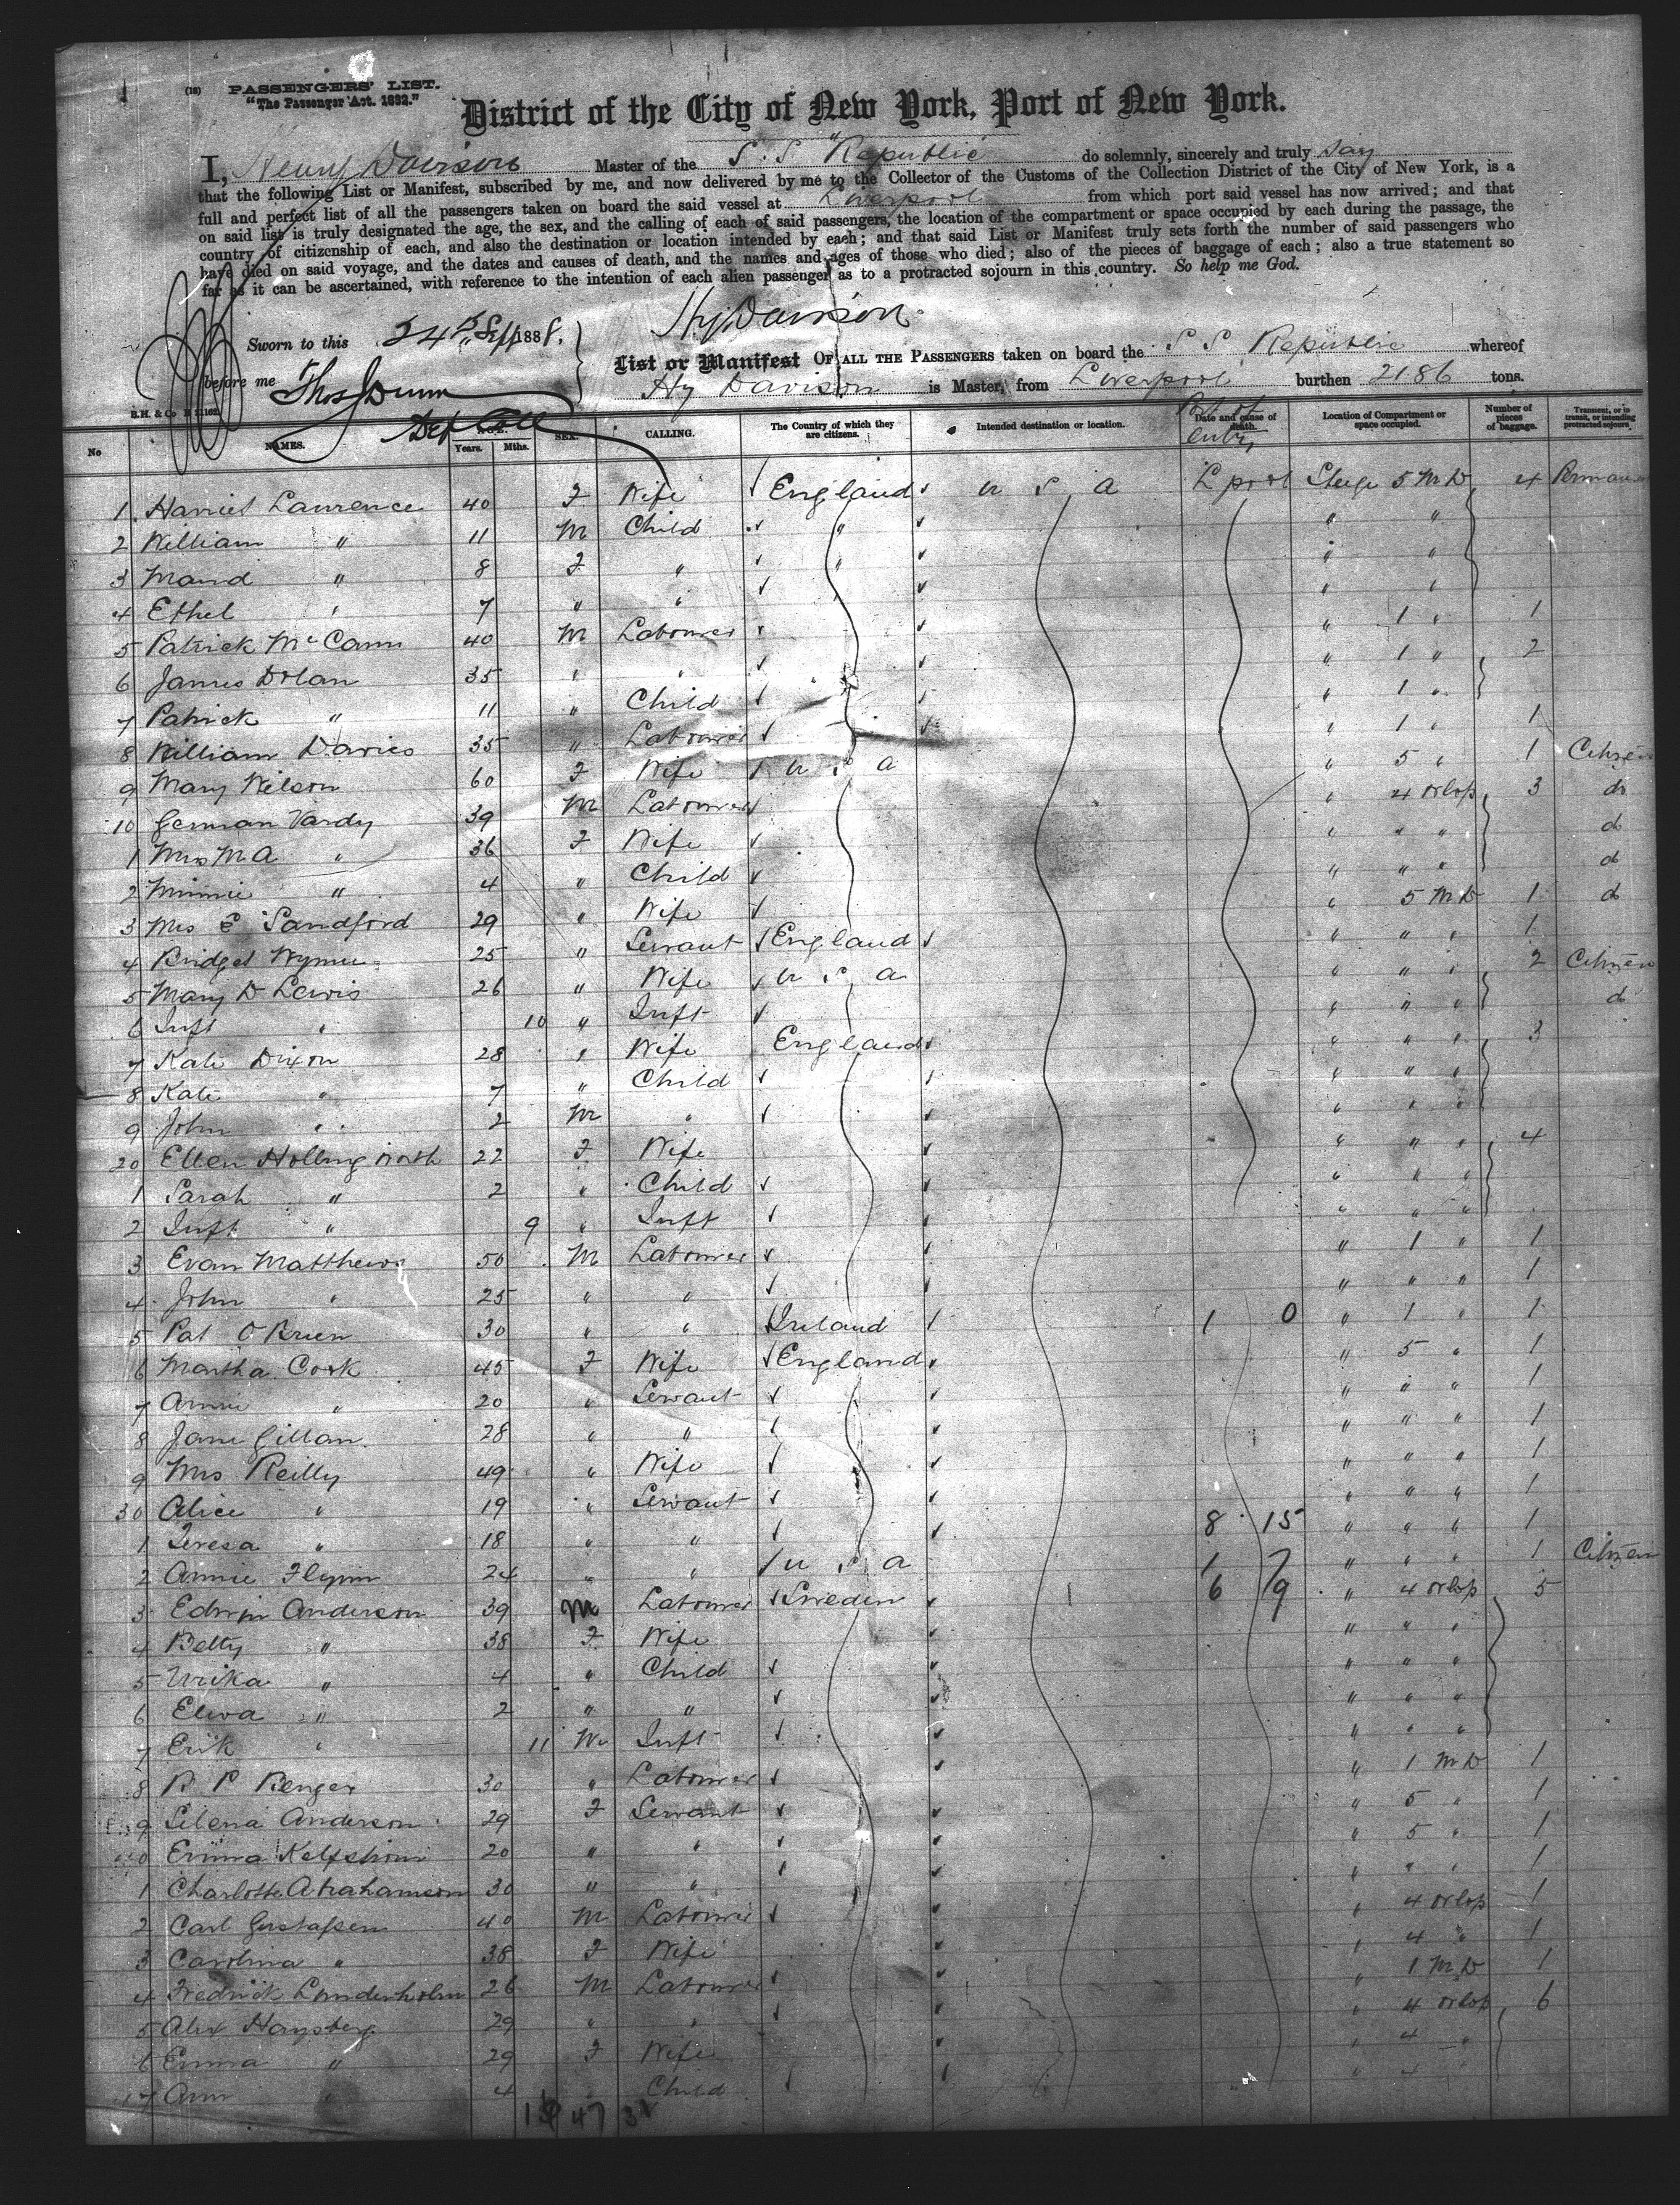 (18) PASSENGERS' LIST.
"The Passenger Act. 1882."
District of the City of New York, Port of New York.
I, Henry Davison Master of the S.S "Republic do solemnly, sincerely and truly say
that the following List or Manifest, subscribed by me, and now delivered by me to the Collector of the Customs of the Collection District of the City of New York, is a
full and perfect list of all the passengers taken on board the said vessel at Liverpool from which port said vessel has now arrived; and that
on said list is truly designated the age, the sex, and the calling of each of said passengers, the location of the compartment or space occupied by each during the passage, the
country of citizenship of each, and also the destination or location intended by each; and that said List or Manifest truly sets forth the number of said passengers who
have died on said voyage, and the dates and causes of death, and the names and ages of those who died; also of the pieces of baggage of each; also a true statement so
far as it can be ascertained, with reference to the intention of each alien passenger as to a protracted sojourn in this country. So help me God.
Hy Davison
Sworn to this 24th Sept 1888.
before me Thos J Dunn
Dep Coll
List or Manifest OF ALL THE PASSENGERS taken on board the S S Republic whereof
Hy Davison is Master, from Liverpool burthen 2186 tons.
No NAMES. Years. Mths. SEX. CALLING. The Country of which they are citizens. Intended destination or location. Date and cause of death. Location of Compartment or space occupied. Number of pieces of baggage. Transient, or in transit, or intending protracted sojourn
Port of entry
1 Harriet Laurence 40 F Wife England U S A L pool Steege 5 M D 4
2 William " 11 M Child " " "
3 Maud " 8 F " " " "
4 Ethel " 7 " " " "
5 Patrick McCann 40 M Labourer " 1 " 1
6 James Dolan 35 " " " 1 " 2
7 Patrick " 11 " Child " 1 "
8 William Davies 35 " Labourer " 1 " 1
9 Mary Wilson 60 F Wife U S A " 5 " 1 Citizen
10 German Vardy 39 M Labourer " 4 orlop 3 do
1 Mrs M A " 36 F Wife " " " do
2 Minnie " 4 " Child " " " do
3 Mrs E Sandford 29 " Wife " 5 M D 1 do
4 Bridget 25 " Servant England " " " 1
5 Mary D Lewis 26 " Wife U S A " " " 2 Citizen
6 Inft " 10 " Inft " " " do
7 Kate Dixon 28 " Wife England " " " 3
8 Kate " 7 " Child " " "
9 John " 2 M " " " "
20 Ellen Hollingworth 22 F Wife " " " 4
1 Sarah " 2 " Child " " "
2 Inft " 9 " Inft " " "
3 Evan Matthews 50 M Labourer " 1 " 1
4 John " 25 " " " " " 1
5 Pat O'Brien 30 " " Ireland 1 0 " 1 " 1
6 Martha Cook 45 F Wife England " 5 " 1
7 Annie " 20 " Servant " " " 1
8 Jane Gillan 28 " " " " " 1
9 Mrs Reilly 49 " Wife " " " 1
30 Alice " 19 " Servant " " " 1
1 Teresa " 18 " " 8 15 " " " 1
2 Annie Flynn 24 " " U S A 1 7 " " " 1 Citizen
3 Edwin Anderson 39 M Labourer Sweden 6 9 " 4 orlop 5
4 Betty " 38 F Wife " " "
5 Urika " 4 " Child " " "
6 Elwa " 2 " " " " "
7 Erik " 11 M Inft " " "
8 B P Benger 30 " Labourer " 1 M D 1
9 Selena Anderson 29 F Servant " 5 " 1
40 Emma 20 " " " 5 " 1
1 Charlotte Abrahamson 30 " " " " " 1
2 Carl Gustafsen 40 M Labourer " 4 orlop 1
3 Carolina " 38 F Wife " 4 " 1
4 Fredrick Lunderholm 26 M Labourer " 1 M D 1
5 Alex 29 " " " 4 orlop 6
6 Emma " 29 F Wife " 4 "
47 Ann " 4 " Child " 4 "